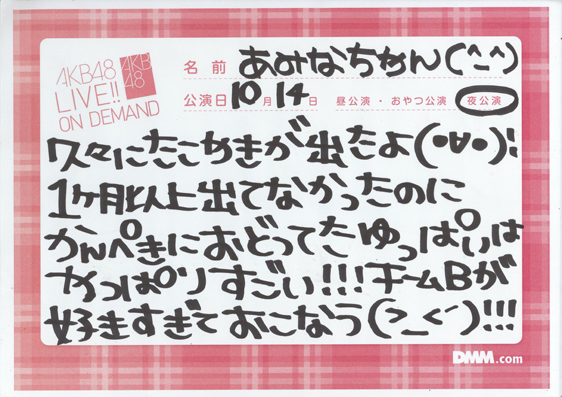 AKB48
LIVE!!
ON DEMAND
AKB
48
名前 あみなちゃん(^-^)
公演日 10月14日 昼公演・おやつ公演 夜公演
久々にたこやきが出たよ(•∀•)!
1ヶ月以上出てなかったのに
かんぺきにおどってたゆっぱぃは
やっぱりすごい!!!チームBが
好きすぎておこなう(>_<)!!!
DMM.com